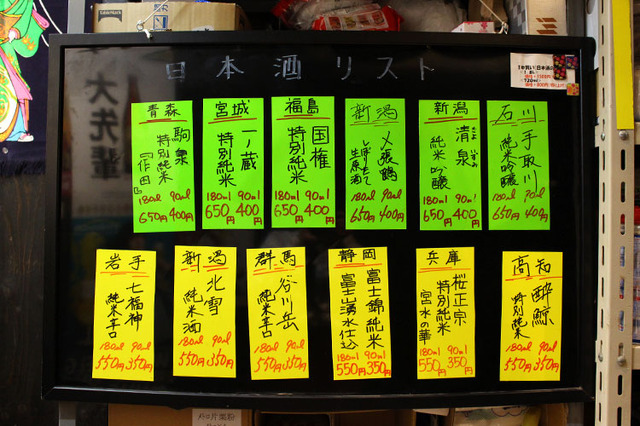 日本酒リスト
大先輩
青森
駒泉
特別純米
「作田」
180ml 90ml
650円 400円
宮城
一ノ蔵
特別純米
180ml 90ml
650円 400円
福島
国権
特別純米
180ml 90ml
650円 400円
新潟
〆張鶴
しぼりたて
生原酒
180ml 90ml
650円 400円
新潟
清泉
純米吟醸
180ml 90ml
650円 400円
石川
手取川
純米吟醸
180ml 90ml
650円 400円
岩手
七福神
純米辛口
180ml 90ml
550円 350円
新潟
北雪
純米酒
180ml 90ml
550円 350円
群馬
谷川岳
純米辛口
180ml 90ml
550円 350円
静岡
富士錦純米
富士山湧水仕込
180ml 90ml
550円 350円
兵庫
桜正宗
特別純米
宮水の華
180ml 90ml
550円 350円
高知
酔鯨
特別純米
180ml 90ml
550円 350円